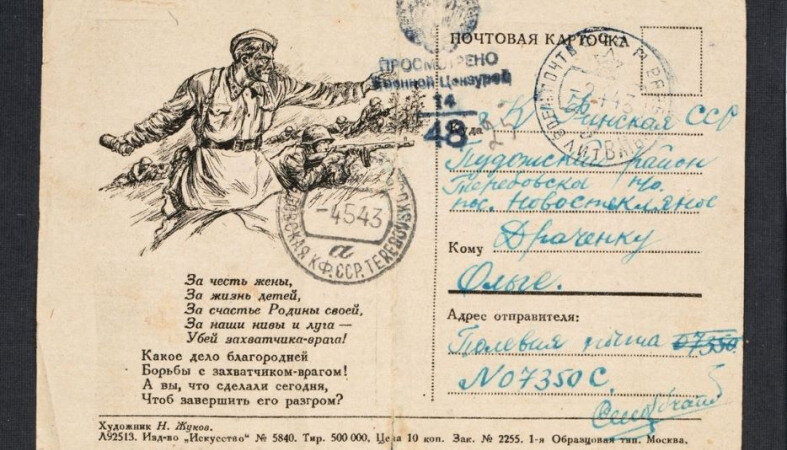 ПОЧТОВАЯ КАРТОЧКА
ПРОСМОТРЕНО
Военной Цензурой
14
48
Куда
К Финская ССР
Пудожский район
Теребовское п/о.
пос. Новостекляное
Кому Драченку
Ольге.
Адрес отправителя:
Полевая почта 07350
N 07350 С.
-4 5 43
а
К.Ф. ССР. TEREBOVSKO
За честь жены,
За жизнь детей,
За счастье Родины своей,
За наши нивы и луга —
Убей захватчика-врага!
Какое дело благородней
Борьбы с захватчиком-врагом!
А вы, что сделали сегодня,
Чтоб завершить его разгром?
Художник Н. Жуков.
Л92513. Изд-во „Искусство" № 5840. Тир. 500 000, Цена 10 коп. Зак. № 2255. 1-я Образцовая тип. Москва.